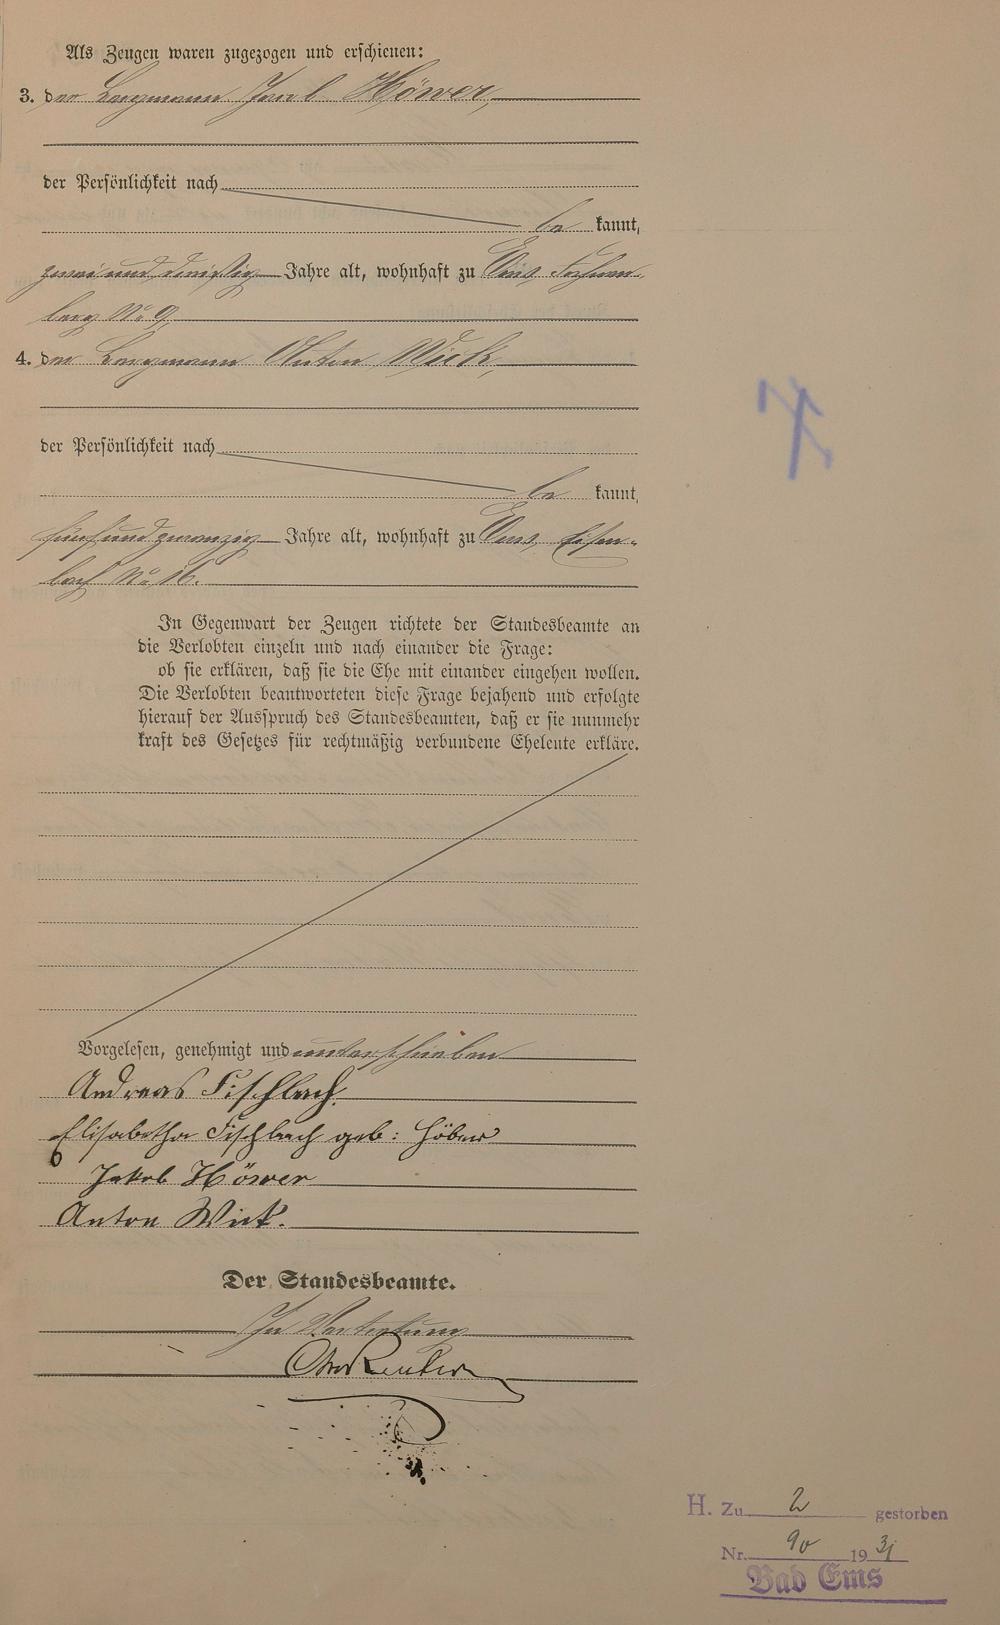 Als Zeugen waren zugezogen und erschienen:
3. der Bergmann Jacob Höwer,
der Persönlichkeit nach
be kannt,
zwei und dreißig Jahre alt, wohnhaft zu Ems,
berg No 9,
4. der Bergmann Anton Wick,
der Persönlichkeit nach
be kannt,
fünfundzwanzig Jahre alt, wohnhaft zu Ems, Eisen-
bach No 16.
In Gegenwart der Zeugen richtete der Standesbeamte an
die Verlobten einzeln und nach einander die Frage:
ob sie erklären, daß sie die Ehe mit einander eingehen wollen.
Die Verlobten beantworteten diese Frage bejahend und erfolgte
hierauf der Ausspruch des Standesbeamten, daß er sie nunmehr
kraft des Gesetzes für rechtmäßig verbundene Eheleute erkläre.
Vorgelesen, genehmigt und unterschrieben
Andreas Fischbach
Elisabetha Fischbach geb: Höber
Jakob Höwer
Anton Wick.
Der Standesbeamte.
In Vertretung
H. Zu 2 gestorben
Nr. 90 1931
Bad Ems